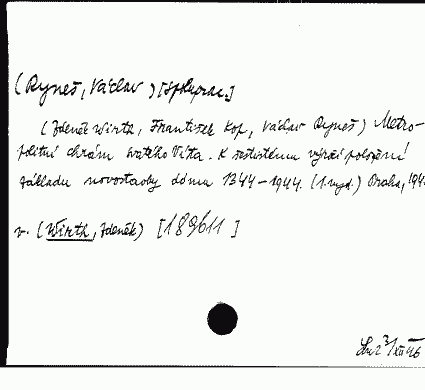 (Ryneš, Václav) [spoluprac.]
(Zdeněk Wirth, František Kop, Václav Ryneš) Metro-
politní chrám svatého Víta. K šestistému výročí položení
základu novostavby dómu 1344-1944. (1. vyd.) Praha, 194
v. (Wirth, Zdeněk) [189611]
3/XII 46